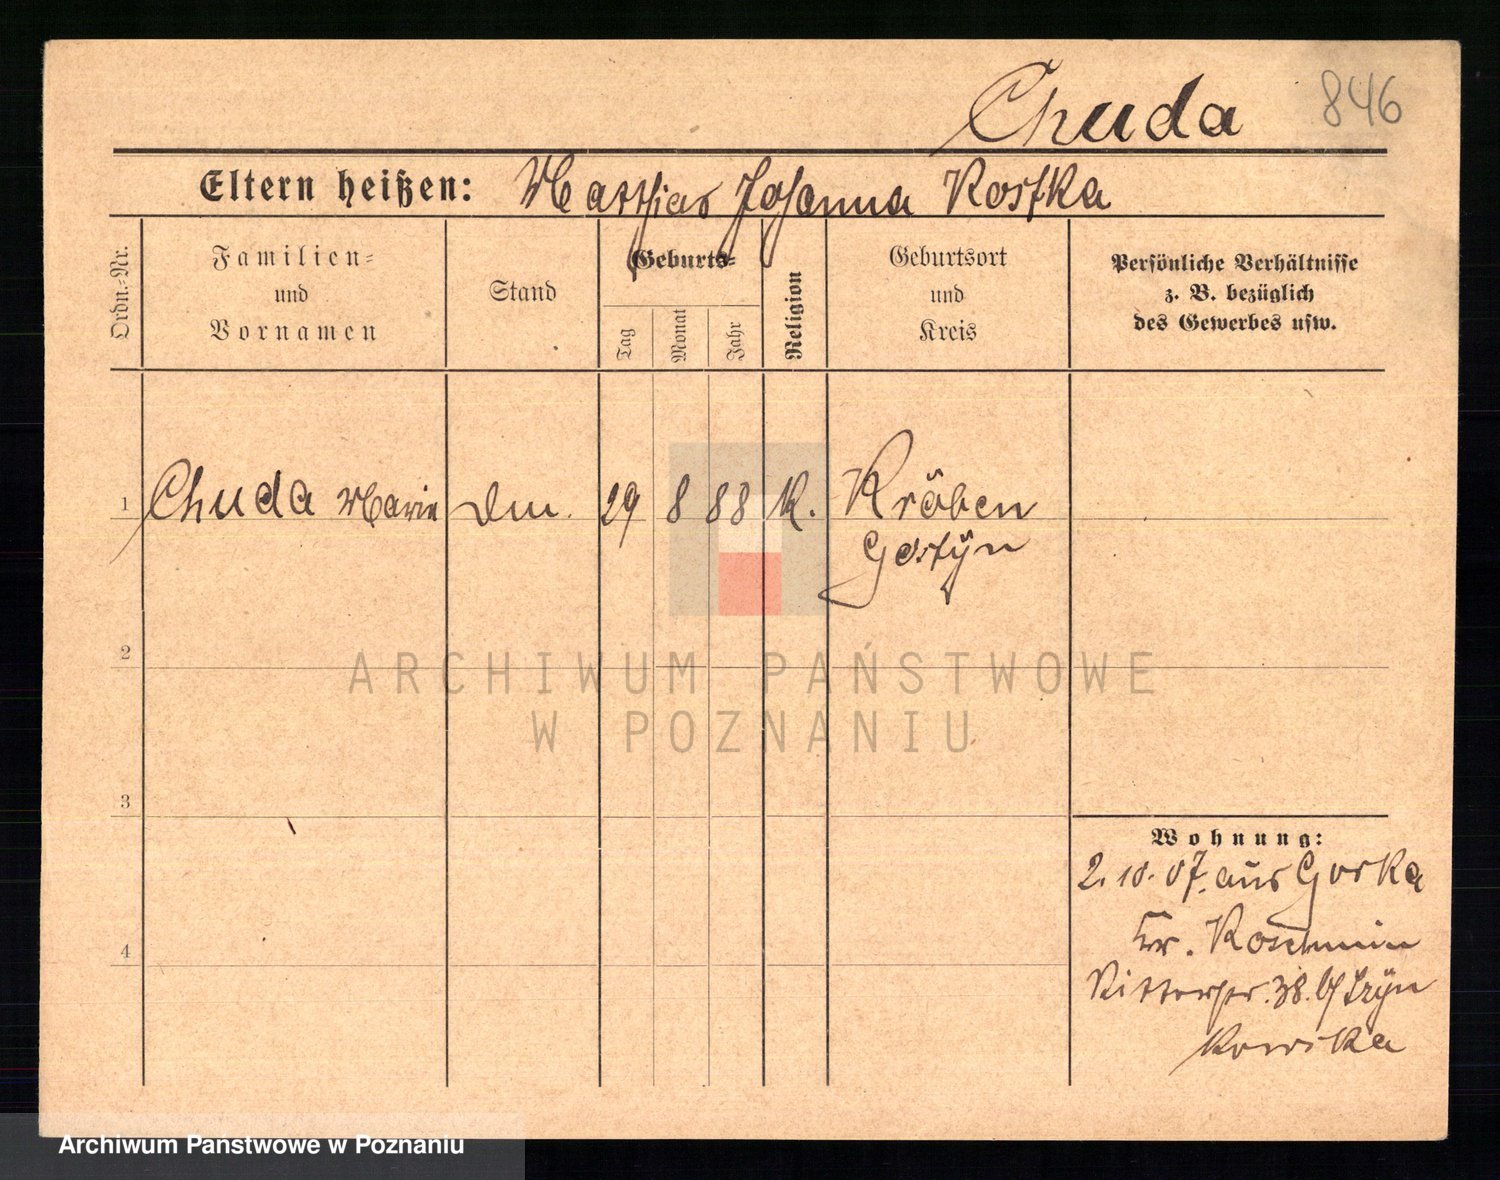 Chuda 846
Eltern heißen: Matthias Johanna Rostka
Ordn.-Nr.
Familien-
und
Vornamen
Stand
Geburts-
Tag
Monat
Jahr
Religion
Geburtsort
und
Kreis
Persönliche Verhältnisse
z. B. bezüglich
des Gewerbes usw.
1 Chuda Marie 29 8 88 K. Kröben
Gostÿn
2
ARCHIWUM PAŃSTWOWE
W POZNANIU
3
Wohnung:
2. 10. 07. aus Gorka
Kr. Koschmin
Ritterstr. 38. b/
4
Archiwum Państwowe w Poznaniu